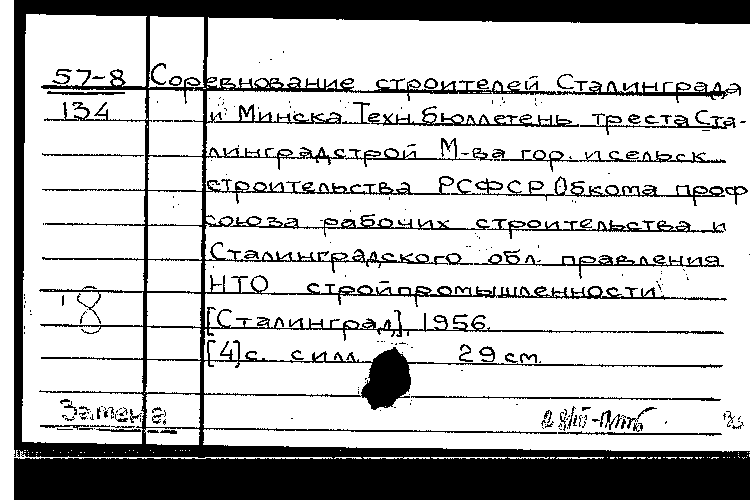 57-8 Соревнование строителей Сталинграда
134 и Минска. Техн. бюллетень треста Ста-
линградстрой М-ва гор. и сельск.
строительства РСФСР, Обкома проф
союза рабочих строительства и
Сталинградского обл. правления
НТО стройпромышленности.
8
[Сталинград], 1956.
[4] с. с илл. 29 см.
Замена